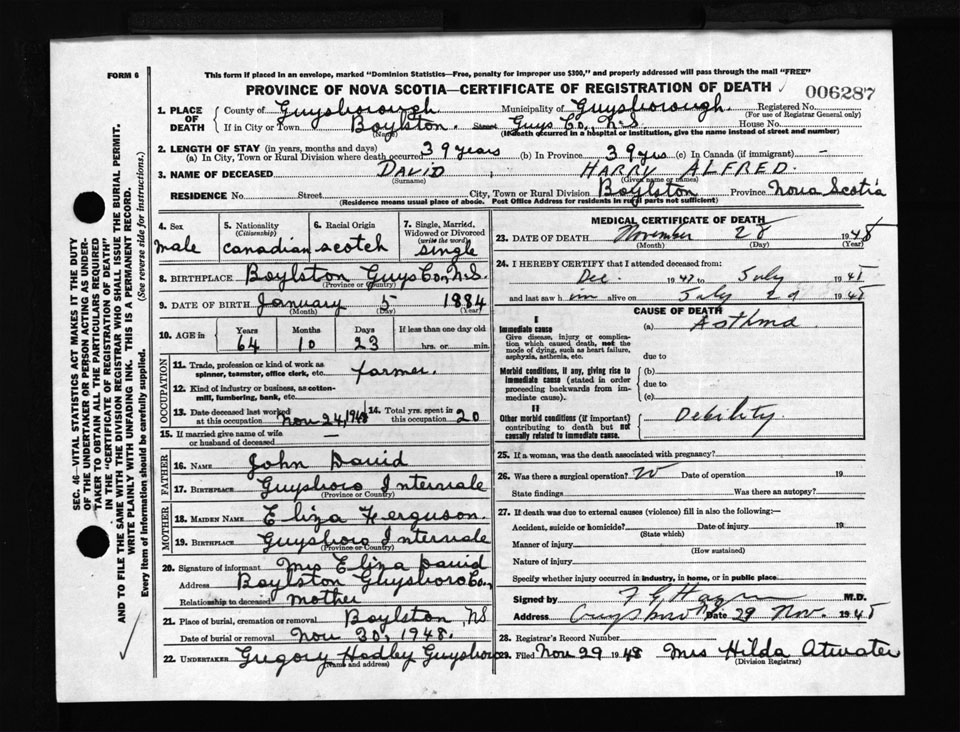 FORM 6
This form if placed in an envelope, marked "Dominion Statistics—Free, penalty for improper use $300," and properly addressed will pass through the mail "FREE"
PROVINCE OF NOVA SCOTIA—CERTIFICATE OF REGISTRATION OF DEATH
006287
1. PLACE OF DEATH
County of Guysborough Municipality of Guysborough. Registered No.
(For use of Registrar General only)
If in City or Town Boylston. Street Guys Co., N.S. House No.
(Name) (If death occurred in a hospital or institution, give the name instead of street and number)
2. LENGTH OF STAY (in years, months and days)
(a) In City, Town or Rural Division where death occurred 39 years (b) In Province 39 yrs (c) In Canada (if immigrant) —
3. NAME OF DECEASED DAVID , HARRY ALFRED.
(Surname) (Given name or names)
RESIDENCE No. Street City, Town or Rural Division Boylston Province Nova Scotia
(Residence means usual place of abode. Post Office Address for residents in rural parts not sufficient)
4. Sex male
5. Nationality (Citizenship) canadian
6. Racial Origin scotch
7. Single, Married, Widowed or Divorced (write the word) single
8. BIRTHPLACE Boylston Guys Co. N.S.
(Province or Country)
9. DATE OF BIRTH January 5 1884
(Month) (Day) (Year)
10. AGE in Years 64 Months 10 Days 23 If less than one day old hrs. or min.
OCCUPATION
11. Trade, profession or kind of work as spinner, teamster, office clerk, etc. farmer.
12. Kind of industry or business, as cotton-mill, lumbering, bank, etc.
13. Date deceased last worked at this occupation Nov 24/1948 14. Total yrs. spent in this occupation 20
15. If married give name of wife or husband of deceased —
FATHER
16. NAME John David
17. BIRTHPLACE Guysboro Intervale
(Province or Country)
MOTHER
18. MAIDEN NAME Eliza Ferguson.
19. BIRTHPLACE Guysboro Intervale
(Province or Country)
20. Signature of informant Mrs Eliza David
Address Boylston Guysboro Co.,
Relationship to deceased mother
21. Place of burial, cremation or removal Boylston NS
Date of burial or removal Nov 30, 1948.
22. UNDERTAKER Gregory Hadley Guysboro
(Name and address)
MEDICAL CERTIFICATE OF DEATH
23. DATE OF DEATH November 28 1948
(Month) (Day) (Year)
24. I HEREBY CERTIFY that I attended deceased from:
Dec. 1947 to July 1948
and last saw him alive on July 29 1948
CAUSE OF DEATH
I
Immediate cause (a) Asthma
Give disease, injury or complication which caused death, not the mode of dying, such as heart failure, asphyxia, asthenia, etc.
due to
Morbid conditions, if any, giving rise to immediate cause (stated in order proceeding backwards from immediate cause).
(b)
due to
(c)
II
Other morbid conditions (if important) contributing to death but not causally related to immediate cause. Debility.
25. If a woman, was the death associated with pregnancy?
26. Was there a surgical operation? Date of operation 19
State findings Was there an autopsy?
27. If death was due to external causes (violence) fill in also the following:—
Accident, suicide or homicide? Date of injury 19
(State which)
Manner of injury
(How sustained)
Nature of injury
Specify whether injury occurred in industry, in home, or in public place
Signed by M.D.
Address Guysboro NS Date 29 Nov. 1948
28. Registrar's Record Number
29. Filed Nov 29 1948 Mrs Hilda Atwater
(Division Registrar)
SEC. 46—VITAL STATISTICS ACT MAKES IT THE DUTY
OF THE UNDERTAKER OR PERSON ACTING AS UNDER-
TAKER TO OBTAIN ALL THE PARTICULARS REQUIRED
IN THE "CERTIFICATE OF REGISTRATION OF DEATH"
AND TO FILE THE SAME WITH THE DIVISION REGISTRAR WHO SHALL ISSUE THE BURIAL PERMIT.
WRITE PLAINLY WITH UNFADING INK. THIS IS A PERMANENT RECORD.
Every item of information should be carefully supplied. (See reverse side for instructions.)